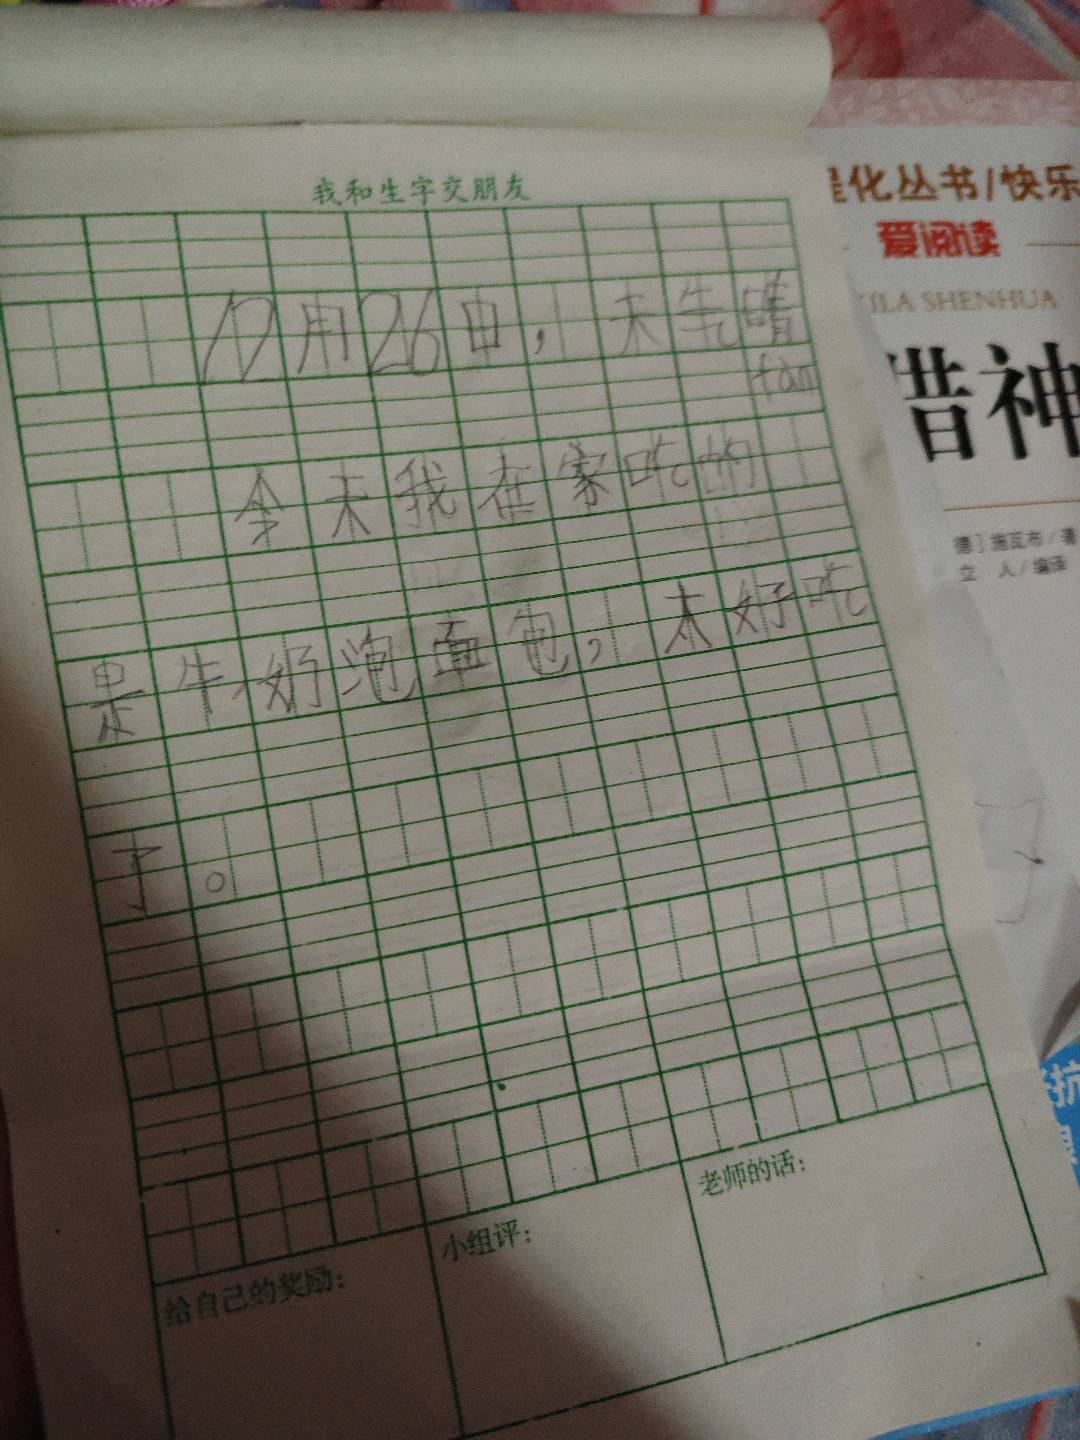 我和生字交朋友
12月26日，天气晴
fan
今天我在家吃的
是牛奶泡面包，太好吃
了。
给自己的奖励：
小组评：
老师的话：
化丛书/快乐
爱阅读
ILA SHENHUA
惜神
德］施瓦布／著
立 人／编译
抗